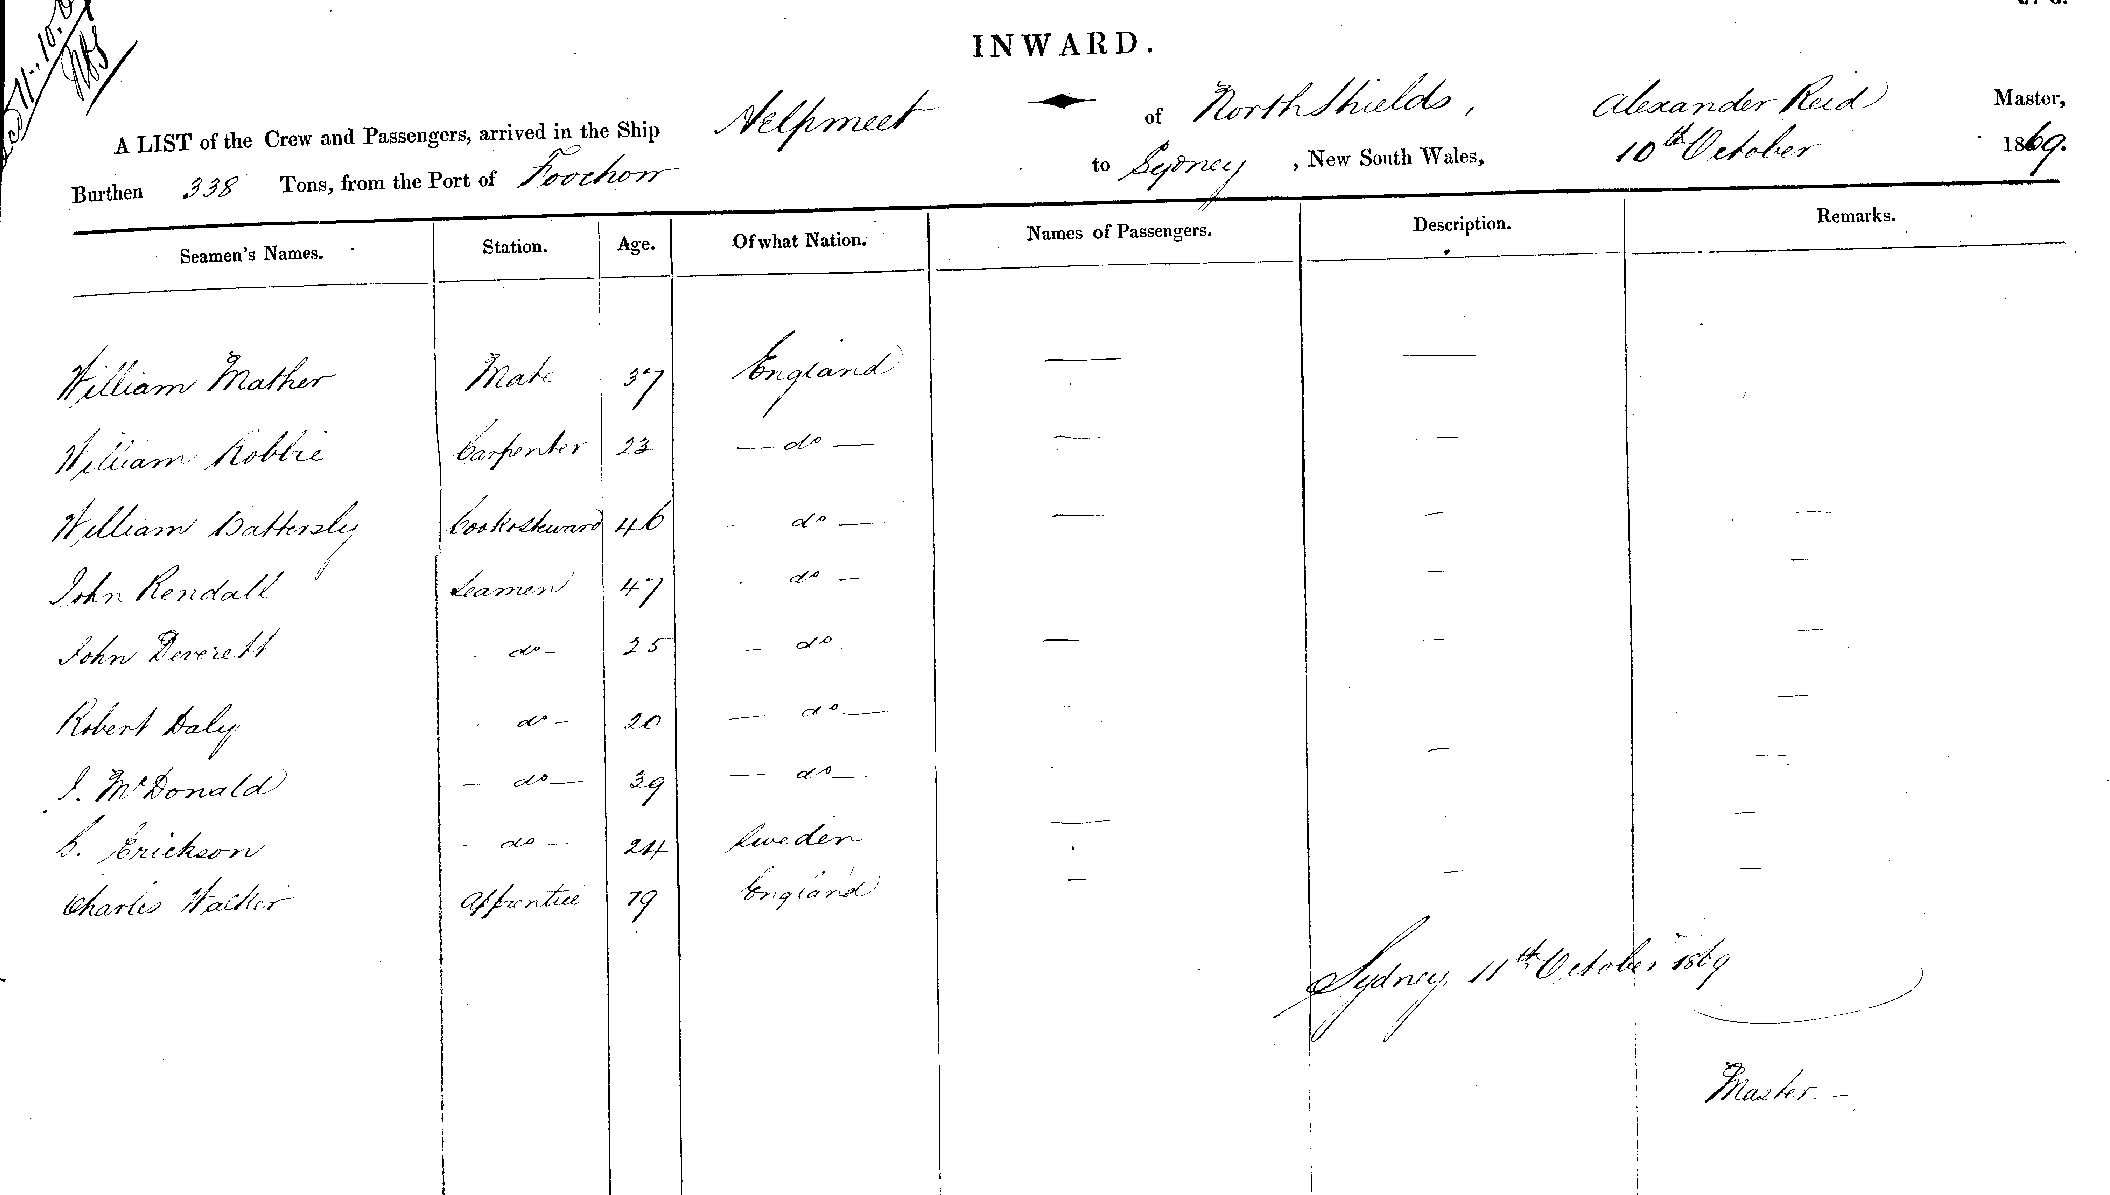 INWARD.
A LIST of the Crew and Passengers, arrived in the Ship Helpmeet of North Shields, Alexander Reid Master,
Burthen 338 Tons, from the Port of Foochow to Sydney, New South Wales, 10th October 1869.
Seamen's Names. Station. Age. Of what Nation. Names of Passengers. Description. Remarks.
William Mather Mate 37 England — —
William Robbie Carpenter 23 — do — — —
William Battersly Cook & Steward 46 do — — — —
John Rendall Seamen 47 do — — —
John Deverett do — 25 — do — — —
Robert Daly do — 20 — do — —
J. McDonald — do — 39 — do — — —
C. Erickson - do - 24 Sweden — —
Charles Walker Apprentice 19 England — — —
Sydney, 11th October 1869
Master. —